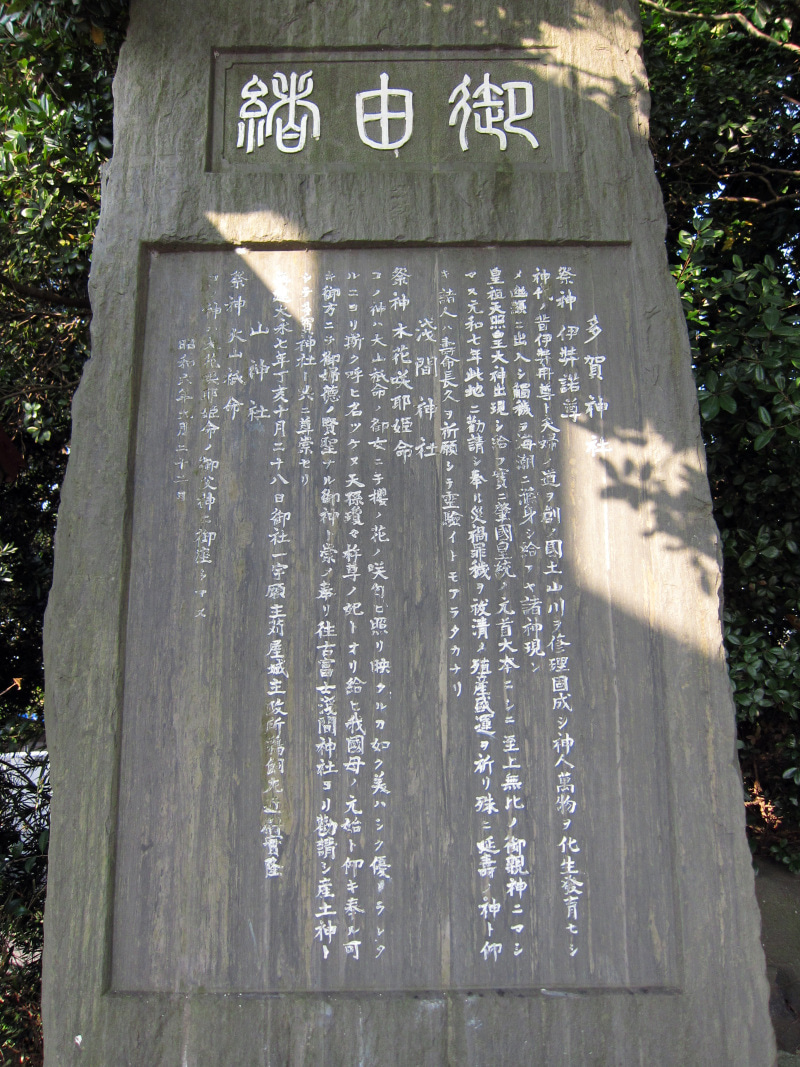 御由緒
多賀神社
祭神 伊弉諾尊
神代ノ昔伊弉冉尊ト夫婦ノ道ヲ創メ國土山川ヲ修理固成シ神人萬物ヲ化生發育セシ
メ幽顯ニ出入シ觸穢ヲ海潮ニ滌身シ給フヤ諸神現シ
皇祖天照皇大神出現シ給フ實ニ肇國皇統ノ元首大本ニシテ至上無比ノ御親神ニマシ
マス元和七年此地ニ勸請シ奉リ災禍罪穢ヲ祓清メ殖産盛運ヲ祈リ殊ニ延壽ノ神ト仰
キ諸人ハ壽命長久ヲ祈願シテ霊驗イトモアラタカナリ
淺間神社
祭神 木花咲耶姫命
コノ神ハ大山祇命ノ御女ニテ櫻ノ花ノ咲匂ヒ照リ映ケルカ如ク美ハシク優リラレタ
ルニヨリ斯ク呼ヒ名ツケヌ天孫瓊々杵尊ノ妃トナリ給ヒ我國母ノ元始ト仰キ奉ル可
キ御方ニテ御婦德ノ賢聖ナル御神ト崇メ奉リ往古富士淺間神社ヨリ勸請シ産土神ト
シテ 神社ト共ニ尊崇セリ
大永七年丁亥十月二十八日御社一宇願主苅屋城主政所
山神社
祭神 大山祇命
神ハ木花咲耶姫命ノ御父神ニ御座シマス
昭和六年 月二十二日